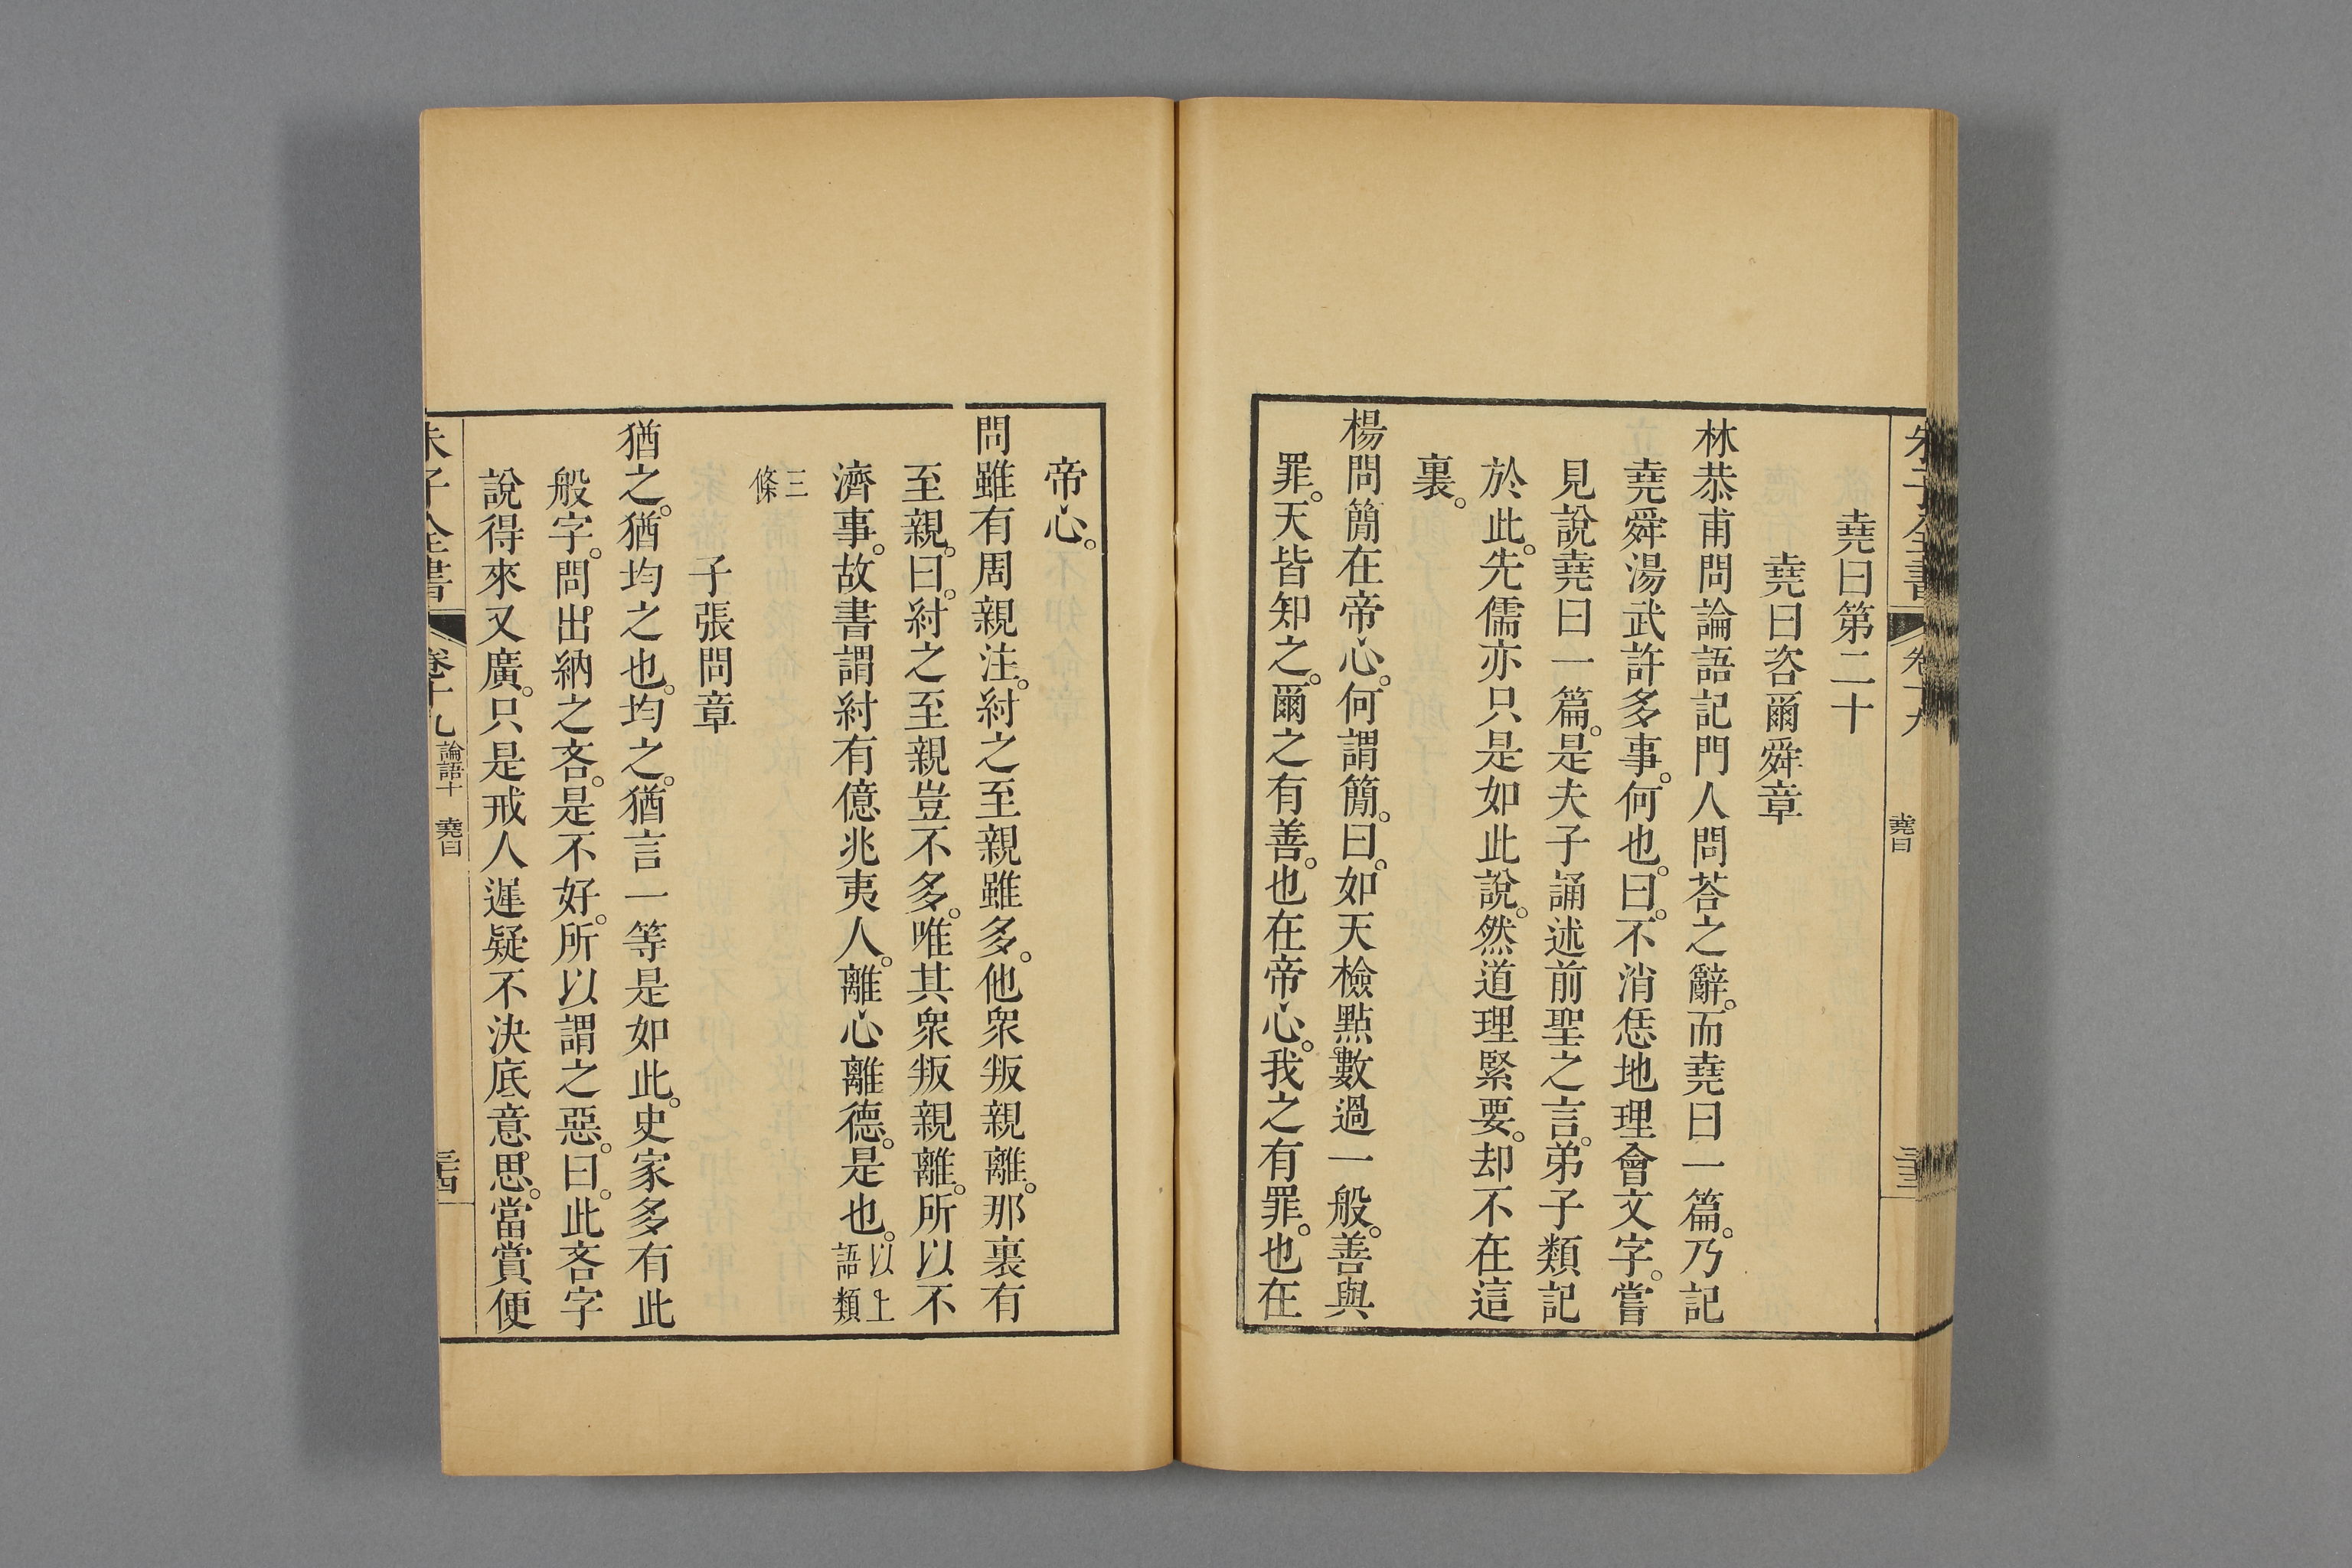 朱子全書 卷十九 堯曰 三三
堯曰第二十
堯曰咨爾舜章
林恭甫問論語記門人問荅之辭。而堯曰一篇。乃記
堯舜湯武許多事。何也。曰。不消恁地理會文字。嘗
見說堯曰一篇。是夫子誦述前聖之言。弟子類記
於此。先儒亦只是如此說。然道理緊要。却不在這
裏。
楊問簡在帝心。何謂簡。曰。如天檢點數過一般。善與
罪。天皆知之。爾之有善。也在帝心。我之有罪。也在
帝心。
問雖有周親注。紂之至親雖多。他衆叛親離。那裏有
至親。曰。紂之至親豈不多。唯其衆叛親離。所以不
濟事。故書謂紂有億兆夷人。離心離德。是也。以上語類
三條
子張問章
猶之。猶均之也。均之。猶言一等是如此。史家多有此
般字。問出納之吝。是不好。所以謂之惡。曰。此吝字
說得來又廣。只是戒人遲疑不決底意思。當賞便
朱子全書 卷十九 論語十 堯曰 三四